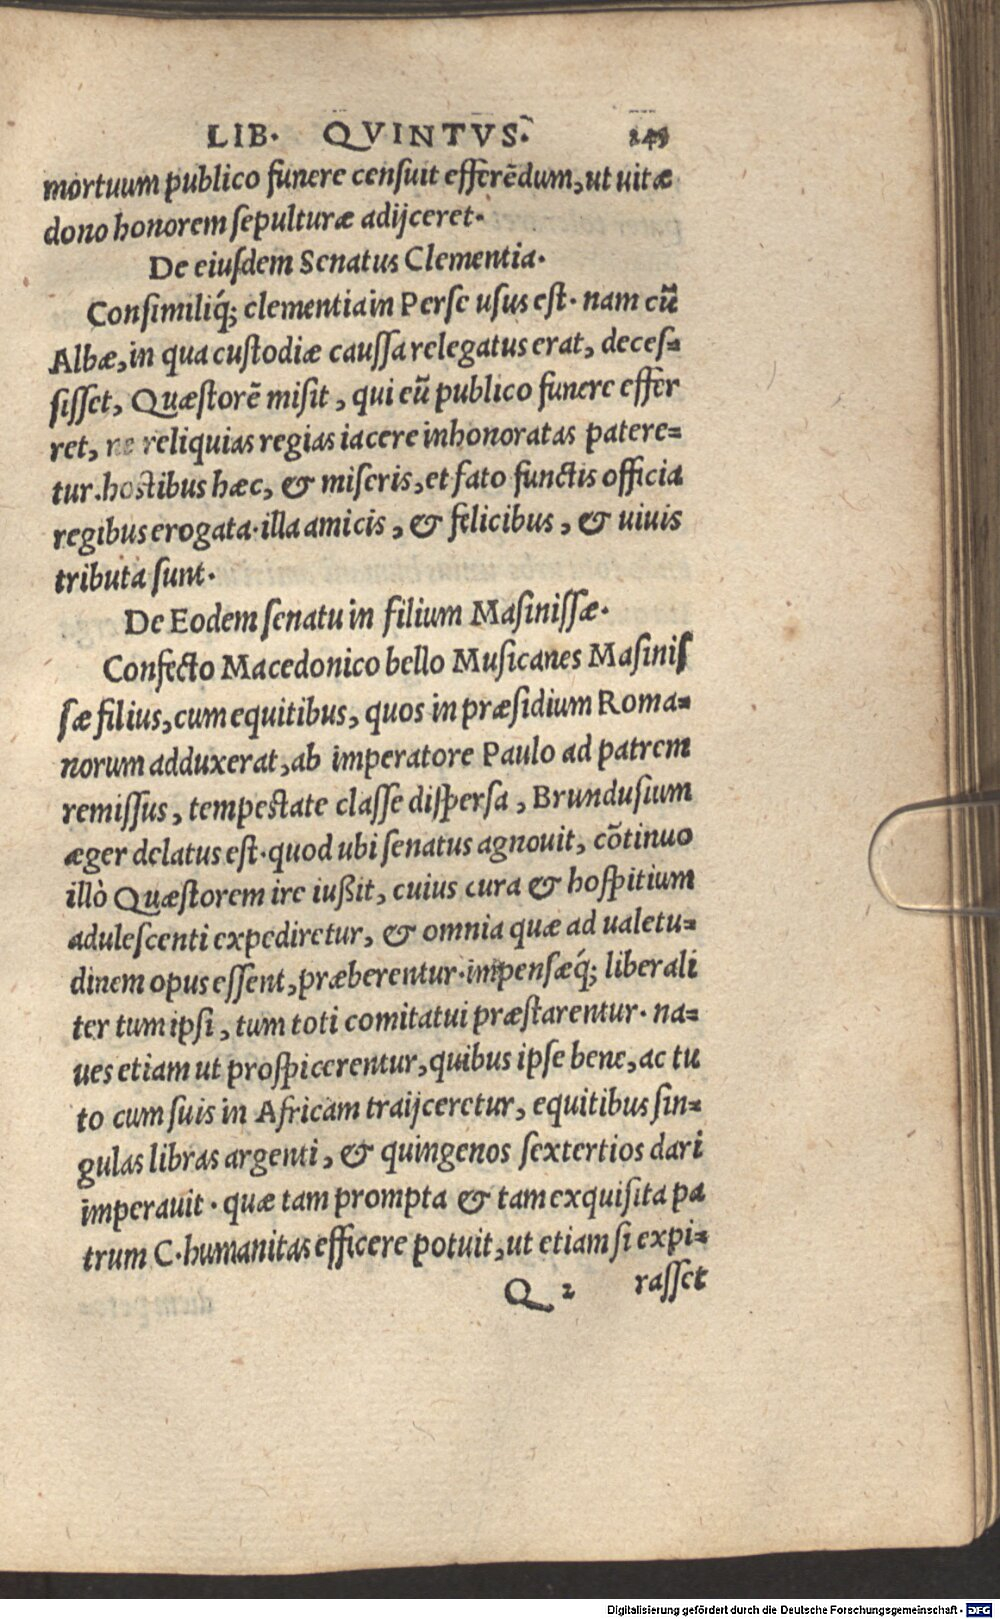 LIB. QVINTVS. 243
mortuum publico funere censuit efferẽdum, ut uitæ
dono honorem sepulturæ adijceret.
De eiusdem Senatus Clementia.
Consimiliq́; clementia in Perse usus est. nam cũ
Albæ, in qua custodiæ caussa relegatus erat, deces=
sisset, Quæstorẽ misit, qui eũ publico funere effer
ret, ne reliquias regias iacere inhonoratas patere=
tur. hostibus hæc, & miseris, et fato functis officia
regibus erogata. illa amicis, & felicibus, & uiuis
tributa sunt.
De Eodem senatu in filium Masinissæ.
Confecto Macedonico bello Musicanes Masinis
sæ filius, cum equitibus, quos in præsidium Roma=
norum adduxerat, ab imperatore Paulo ad patrem
remissus, tempestate classe dispersa, Brundusium
æger delatus est. quod ubi senatus agnouit, cõtinuo
illò Quæstorem ire iußit, cuius cura & hospitium
adulescenti expediretur, & omnia quæ ad ualetu=
dinem opus essent, præberentur. impensæq́; liberali
ter tum ipsi, tum toti comitatui præstarentur. na=
ues etiam ut prospicerentur, quibus ipse bene, ac tu
to cum suis in Africam traijceretur, equitibus sin=
gulas libras argenti, & quingenos sextertios dari
imperauit. quæ tam prompta & tam exquisita pa
trum C. humanitas efficere potuit, ut etiam si expi=
Q 2 rasset
Digitalisierung gefördert durch die Deutsche Forschungsgemeinschaft - DFG